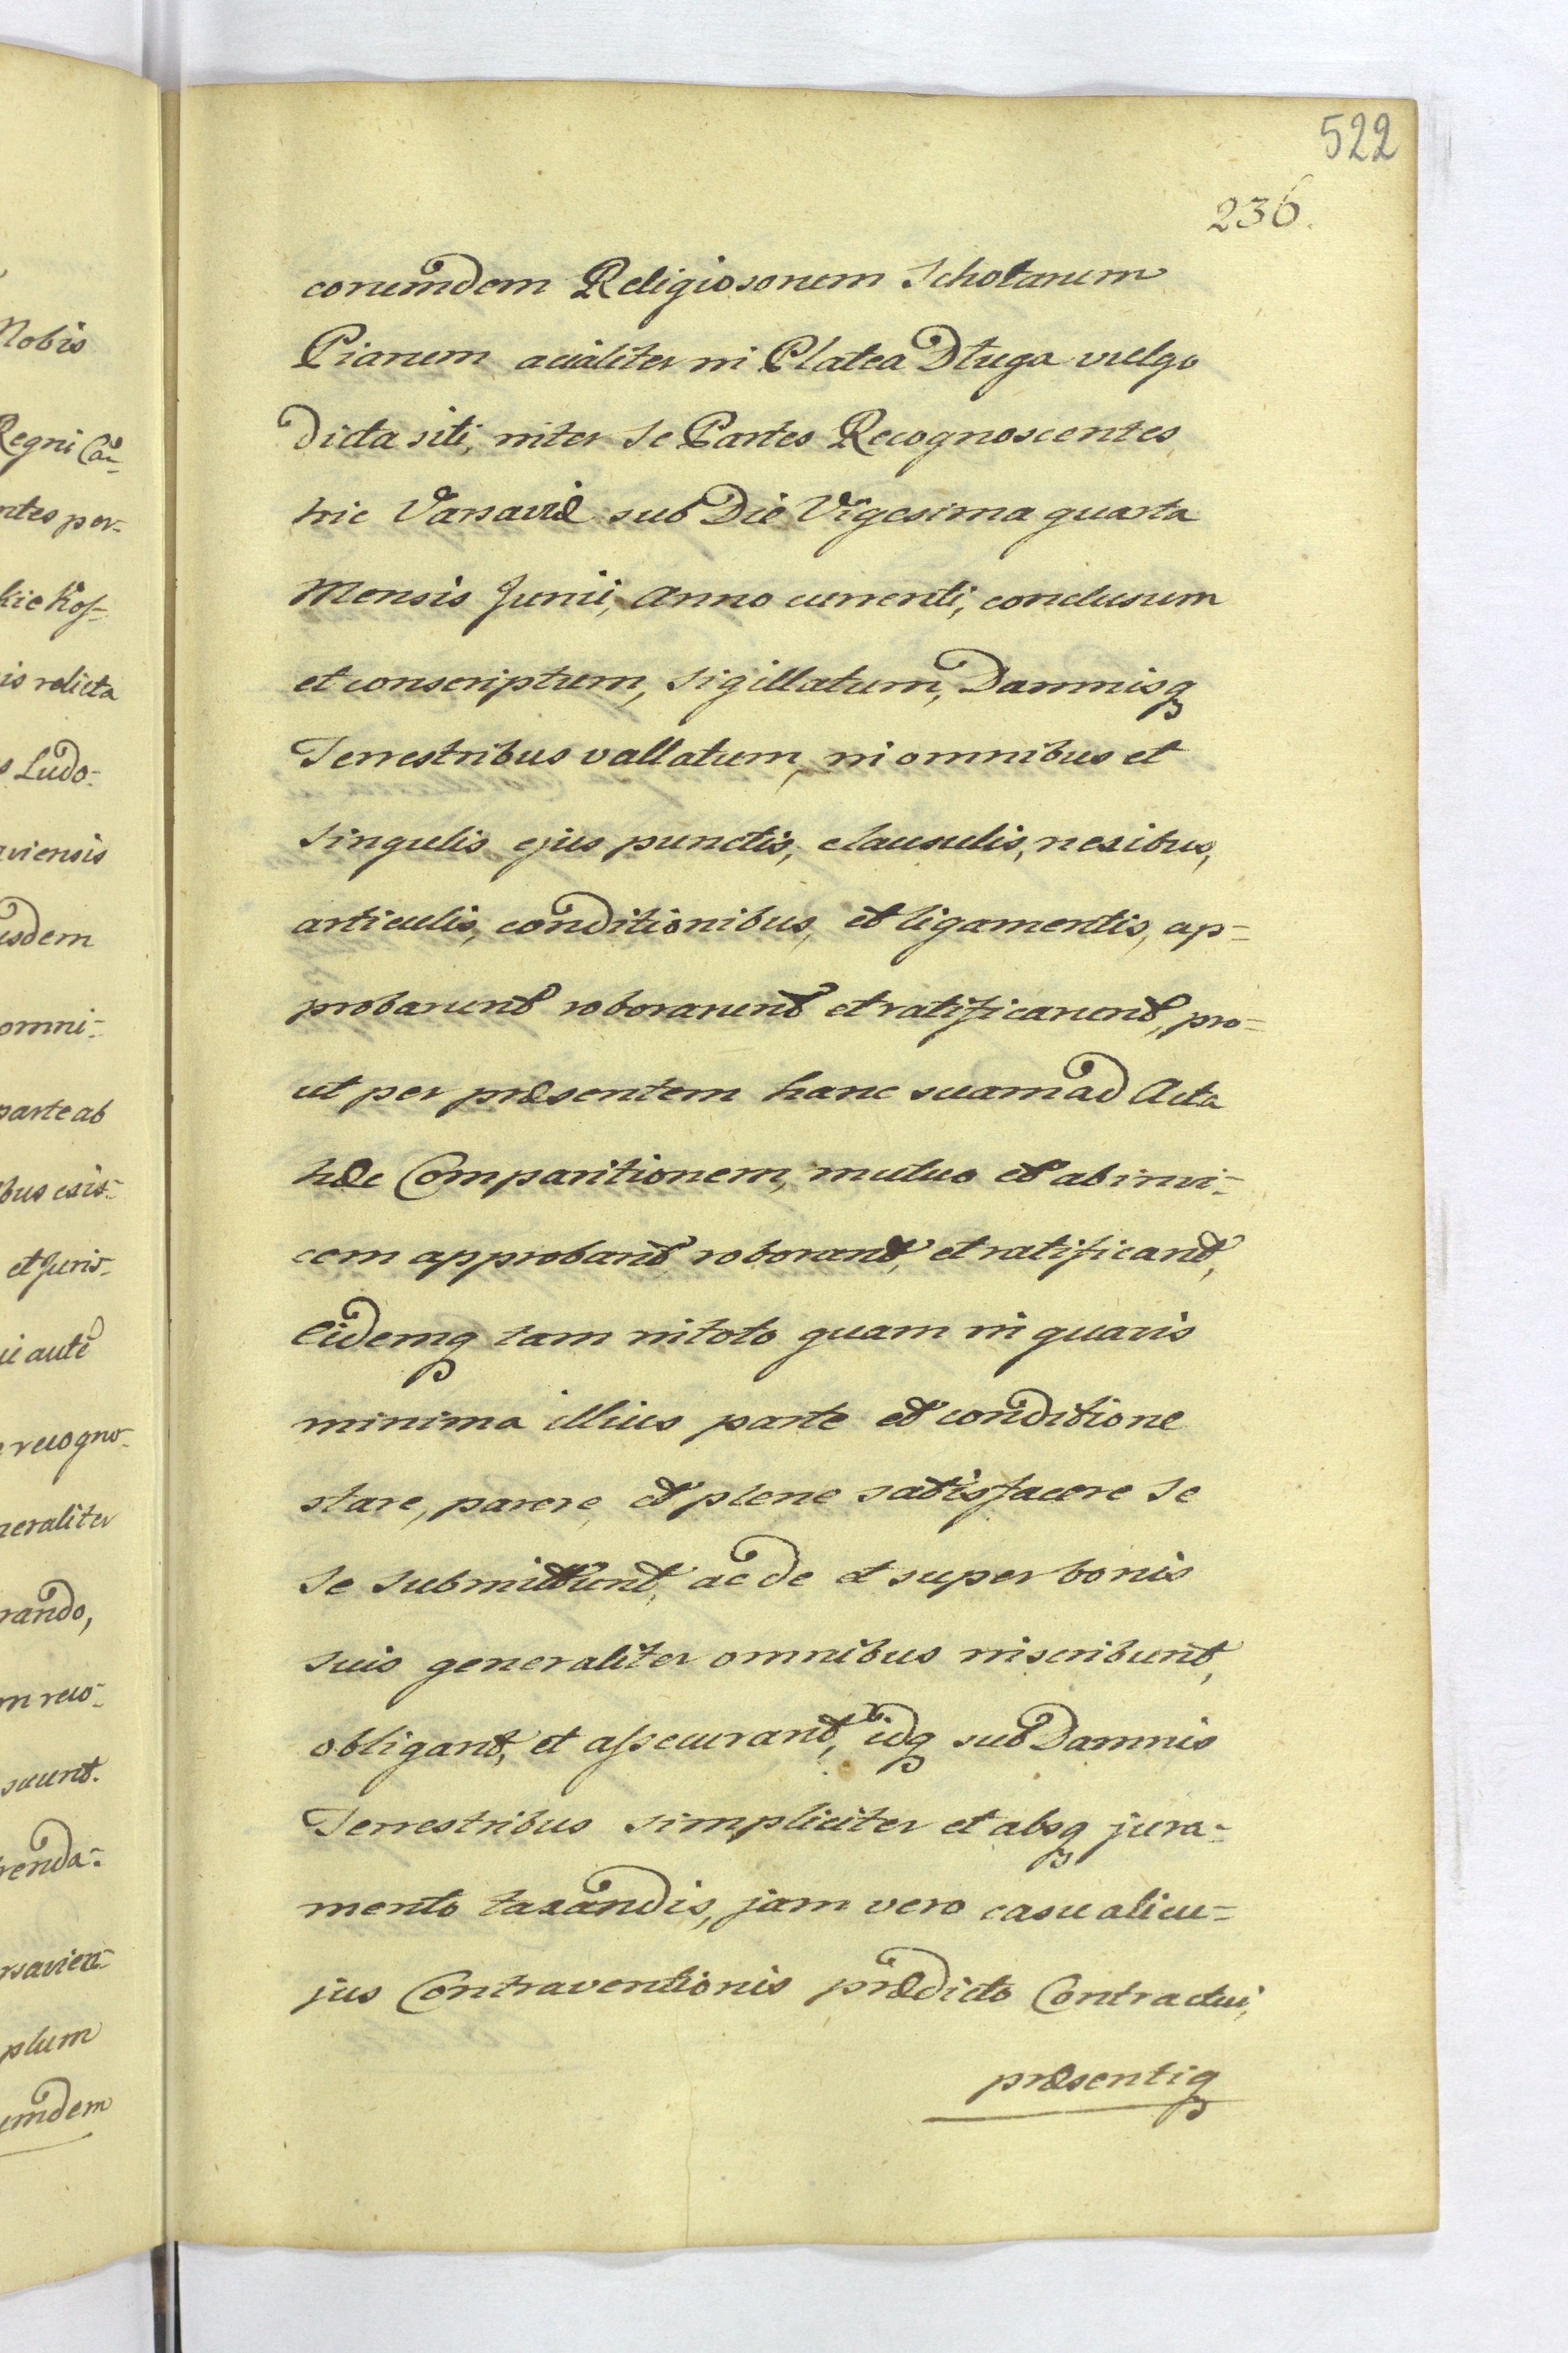 522
236.
eorumdem Religiosorum Scholarum
Piarum actualiter in Platea Długa vulgo
dicta siti, inter se Partes Recognoscentes
hic Varsaviæ sub Die Vigesima quarta
Mensis Junii, Anno currenti, conclusum
et conscriptum, sigillatum, Damnisq3
Terrestribus vallatum, in omnibus et
singulis ejus punctis, clausulis, nexibus,
articulis, conditionibus, et ligamentis, ap=
probarunt roborarunt et ratificarunt, pro=
ut per præsentem hanc suam ad Acta
hæc Comparitionem, mutuo et ab invi=
cem approbant roborant, et ratificant,
Eidemq3 tam in toto quam in quavis
minima illius parte et conditione
stare, parere, et plene satisfacere se
se submittunt, ac de et super bonis
suis generaliter omnibus inscribunt,
obligant, et assecurant, idq3 sub Damnis
Terrestribus simpliciter et absq3 jura=
mento taxandis, jam vero casu alicu=
jus Contraventionis prædicto Contractui,
præsentiq3
Nobis
Regni Ca=
ntes per=
hic hos=
is relicta
s Ludo=
aviensis
usdem
omni=
parte ab
bus exis=
et Juris=
ui aute
e recogno=
neraliter
rando,
m reco=
scunt.
renda=
rsavien=
plum
umdem